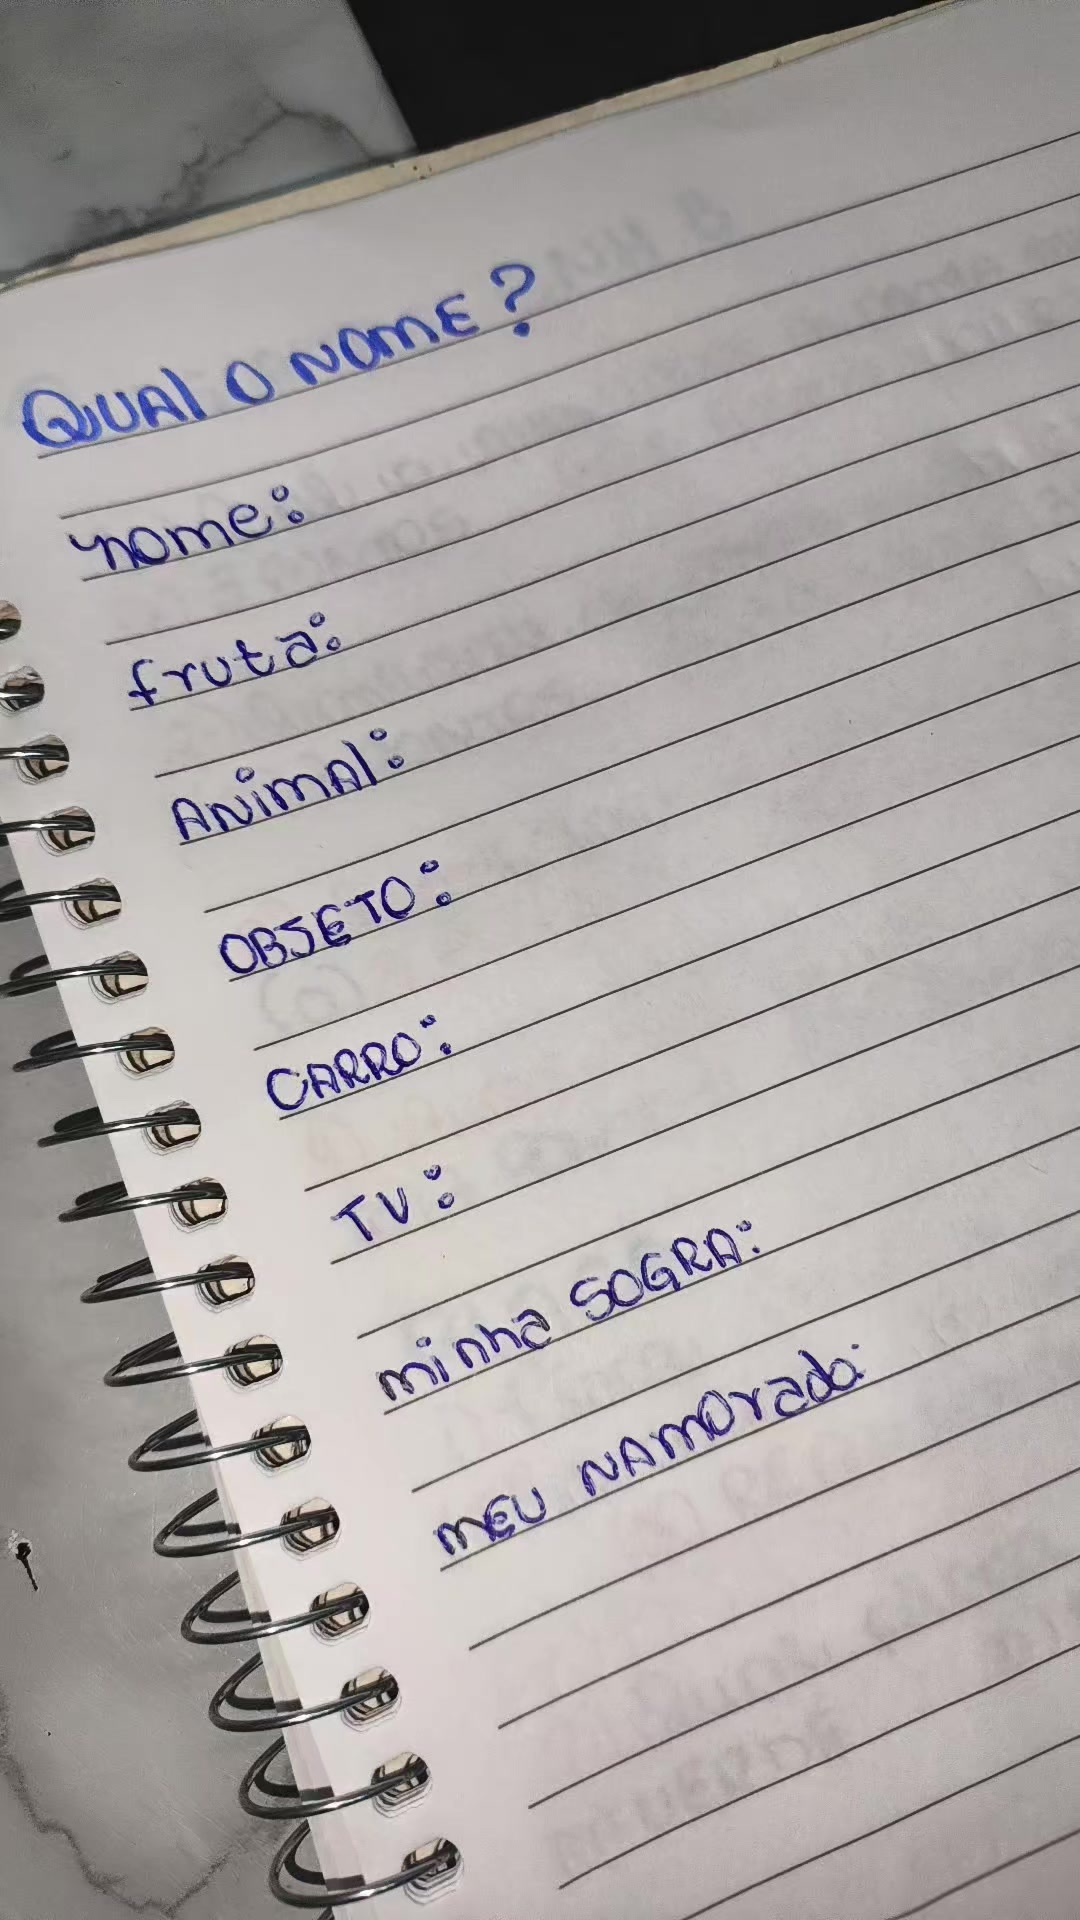 QUAl O NOmE?
nome:
fruta:
ANimAl:
OBJETO:
CARRO:
TV:
minha SOGRA:
mEU NAmOrado: